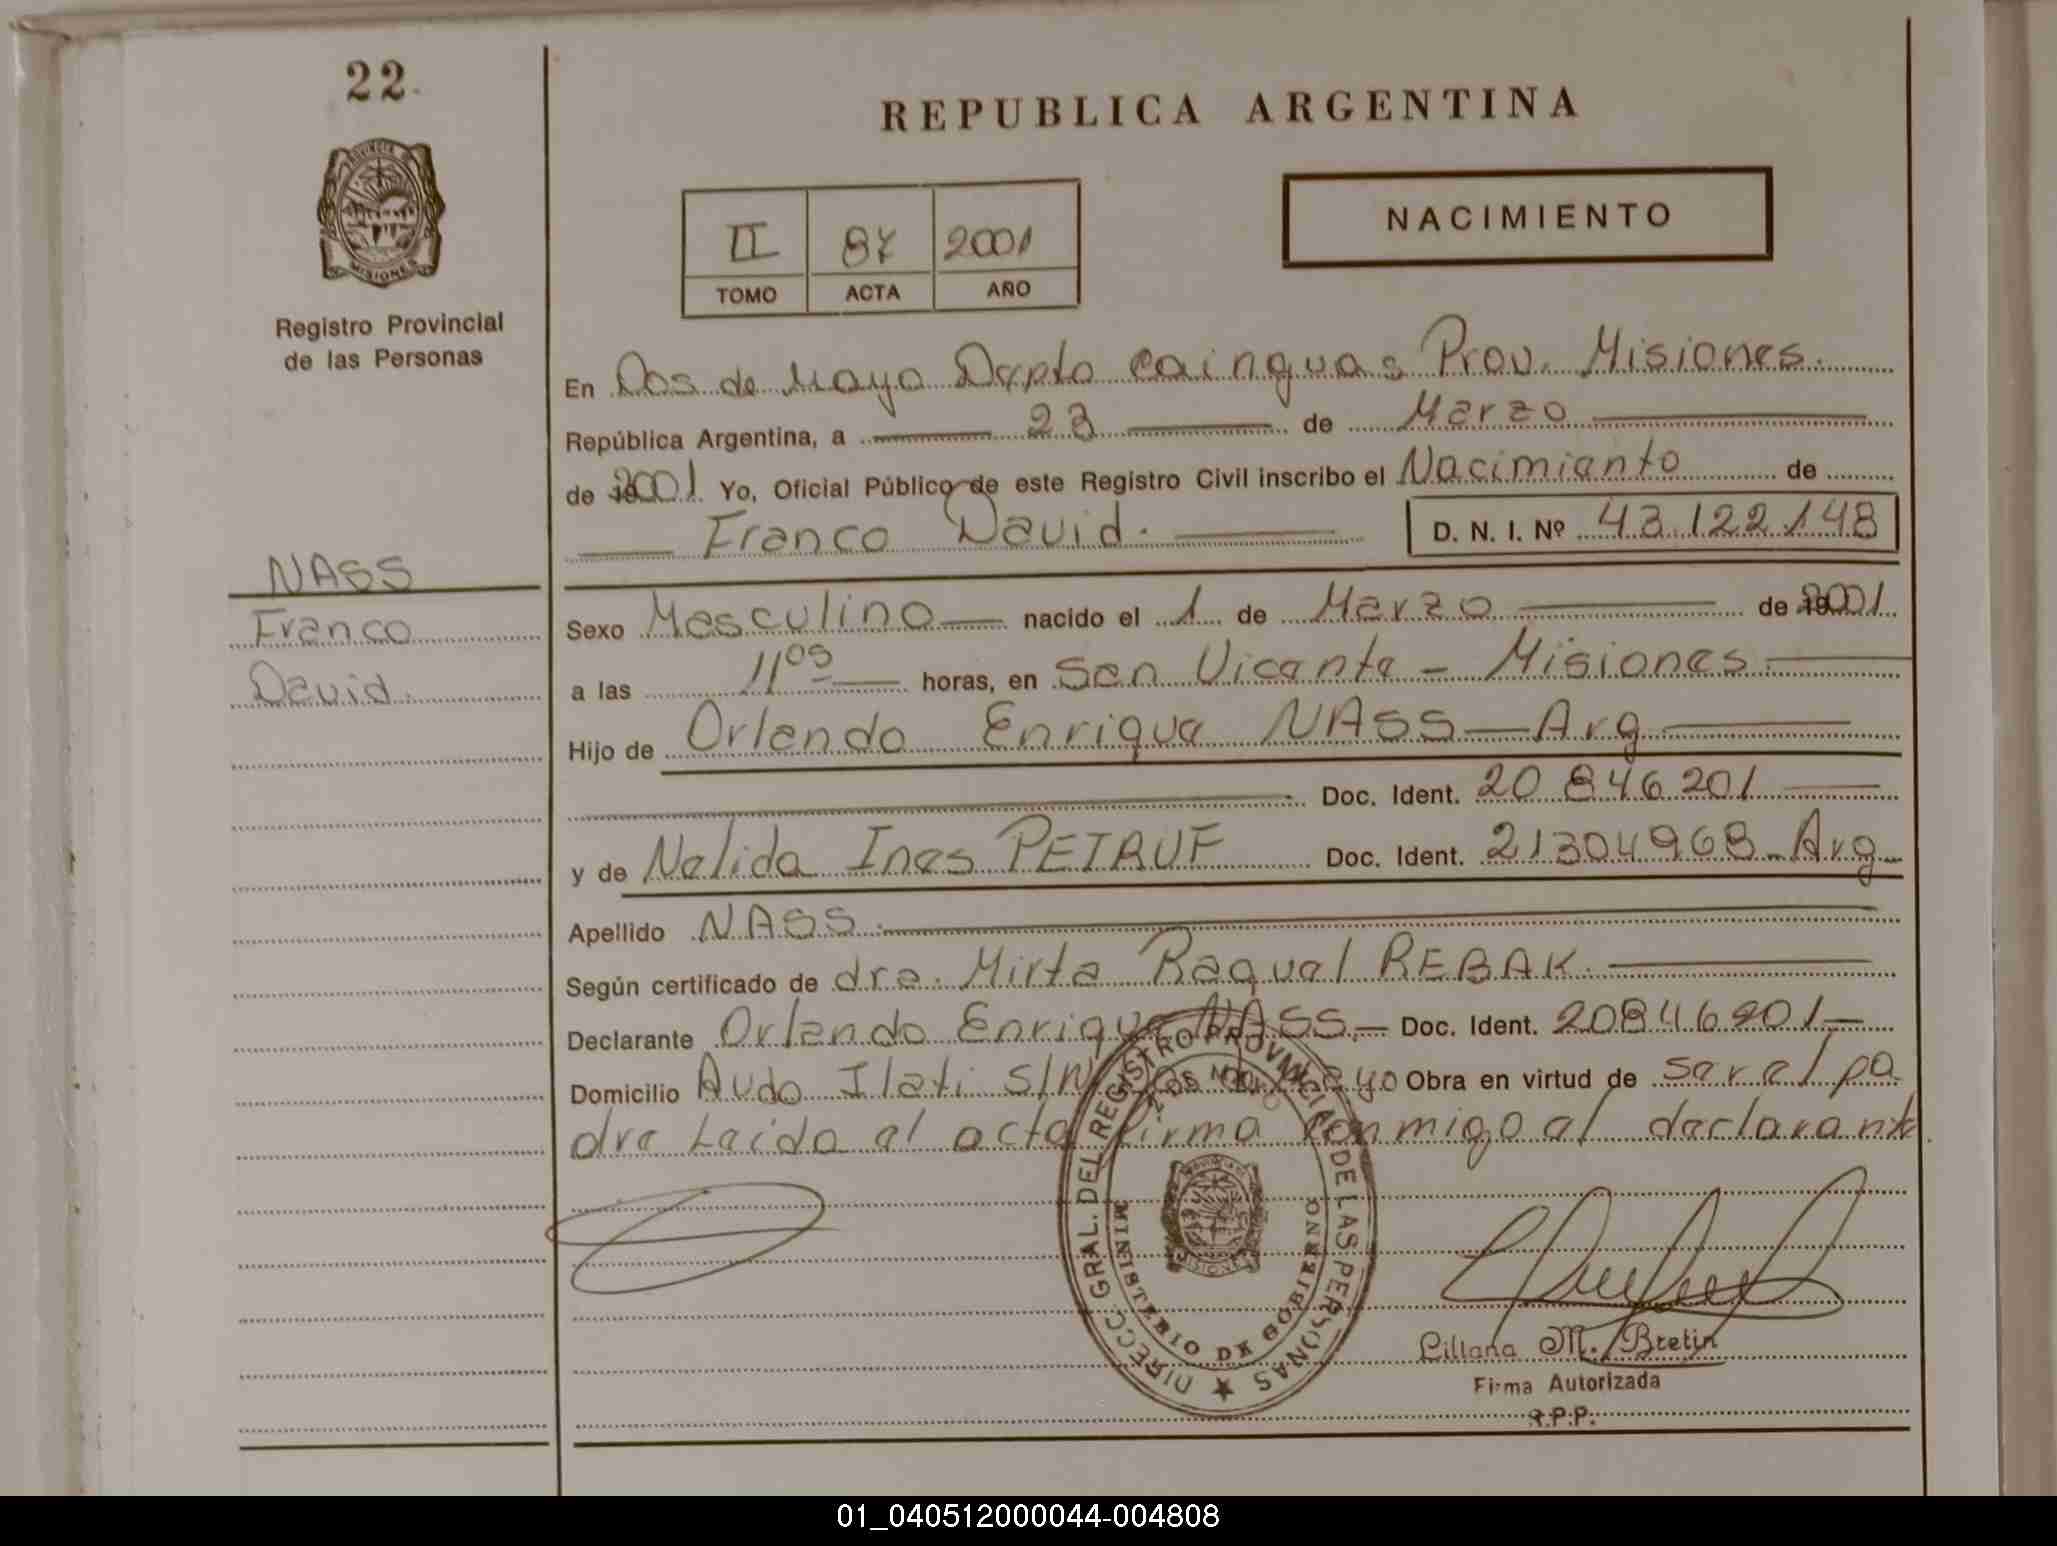 22.
PROVINCIA DE
MISIONES
Registro Provincial
de las Personas
NASS
Franco
David.
REPUBLICA ARGENTINA
NACIMIENTO
II 87 2001
TOMO ACTA AÑO
En Dos de Mayo Depto Cainguas Prov. Misiones.
República Argentina, a 23 de Marzo
de 2001. Yo, Oficial Público de este Registro Civil inscribo el Nacimiento de
Franco David. D. N. I. Nº 43.122.148
Sexo Masculino nacido el 1 de Marzo de 2001
a las 11 05 horas, en San Vicente - Misiones.
Hijo de Orlando Enrique NASS - Arg
Doc. Ident. 20 846 201
y de Nelida Ines PETRUF Doc. Ident. 21304968 - Arg
Apellido NASS.
Según certificado de dra. Mirta Raquel REBAK.
Declarante Orlando Enrique NASS. Doc. Ident. 20846201
Domicilio Avda Ilati S/N Dos Mayo Obra en virtud de ser el pa
dre Leida el acta firma conmigo el declarante.
DIRECC. GRAL. DEL REGISTRO PROVINCIAL DE LAS PERSONAS
MINISTERIO DE GOBIERNO
PROVINCIA DE
MISIONES
Liliana M. Bretin
Firma Autorizada
R.P.P.
01_040512000044-004808